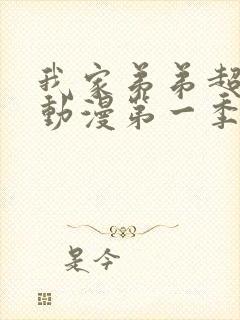 我家弟弟超
動漫第一季
是今